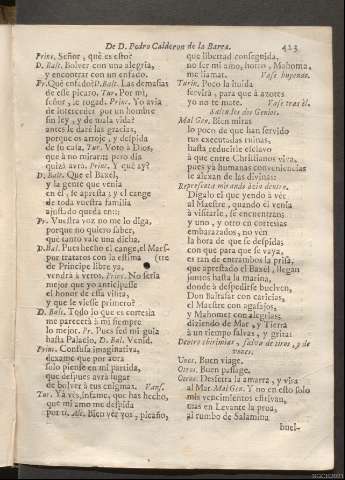 De D. Pedro Calderon de la Barca. 423
Princ. Señor, què es esto?
D. Balt. Bolver con una alegria,
y encontrar con un enfado.
Pr. Què enfado? D. Balt. Las demasias
de esse picaro. Tur. Por mi,
señor, le rogad. Princ. Yo avia
de interceder por un hombre
sin ley, y de mala vida?
antes le darè las gracias,
porque os arroje, y despida
de su casa. Tur. Voto à Dios,
que à no mirar::: pero dia
quizà avrà. Princ. Y què ay?
D. Balt. Que el Baxel,
y la gente que venia
en èl, se apresta; y el cange
de toda vuestra familia
ajustado queda en::
Pr. Vuestra voz no me lo diga,
porque no quiero saber,
que tanto vale una dicha.
D. Bal. Pues hecho el cange, el Maes-
por tratatos con la estima (tre
de Principe libre ya,
vendrà à veros. Princ. No seria
mejor que yo anticipasse
el honor de essa visita,
y que le viesse primero?
D. Balt. Todo lo que es cortesia
me parecerà à mi siempre
lo mejor. Pr. Pues sed mi guia
hasta Palacio. D. Bal. Venid.
Princ. Confusa imaginativa,
dexame que aora
solo piense en mi partida,
que despues avrà lugar
de bolver à tus enigmas. Vans.
Tur. Ya vès, infame, que has hecho,
que mi amo me despida
por ti. Alc. Bien vèr yos, picaño,
que libertad conseguida,
no ser mi amo, horro, Mahoma,
me llamar. Vase huyendo.
Turin. Poco la huida
servirà, para que à azotes
yo no te mate. Vase tras èl.
Salen los dos Genios.
Mal Gen. Bien miras
lo poco de que han servido
tus executadas ruinas,
hasta reducirse esclavo
à que entre Christianos viva,
pues yà humanas conveniencias
le alexan de las divinas:
Representa mirando àcia dentro.
Digalo el que yendo à vèr
al Maestre, quando èl venia
à visitarle, se encuentran;
y uno, y otro en cortesias
embarazados, no vèn
la hora de que se despidas
con que para que se vaya,
es tan de entrambos la prisa,
que aprestado el Baxel, llegan
juntos hasta la marina,
donde à despedirse buelven,
Don Baltasar con caricias,
el Maestre con agasajos,
y Mahomet con alegrias;
diziendo de Mar, y Tierra
à un tiempo salvas, y gritas:
Dentro chirimias, salva de tiros, y de
voces.
Unos. Buen viage.
Otros. Buen passage.
Otros. Desierra la amarra, y viva
al Mar. Mal Gen. Y no en esto solo
mis vencimientos estrivan,
mas en Levante la proa,
al rumbo de Salamina
buel-